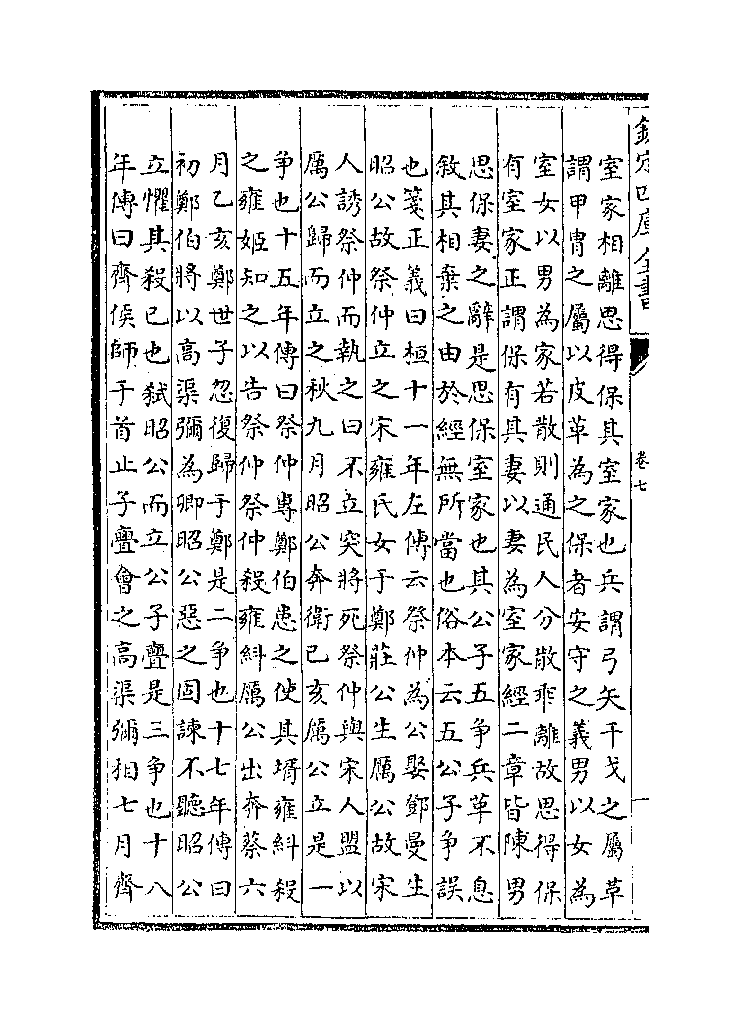 欽定四庫全書
卷七
室家相離思得保其室家也兵謂弓矢干戈之屬革
謂甲冑之屬以皮革為之保者安守之義男以女為
室女以男為家若散則通民人分散乖離故思得保
有室家正謂保有其妻以妻為室家經二章皆陳男
思保妻之辭是思保室家也其公子五争兵革不息
敘其相棄之由於經無所當也俗本云五公子争誤
也箋正義曰桓十一年左傳云祭仲為公娶鄧曼生
昭公故祭仲立之宋雍氏女于鄭莊公生厲公故宋
人誘祭仲而執之曰不立突將死祭仲與宋人盟以
厲公歸而立之秋九月昭公奔衛已亥厲公立是一
争也十五年傳曰祭仲專鄭伯患之使其壻雍糾殺
之雍姬知之以告祭仲祭仲殺雍糾厲公出奔蔡六
月乙亥鄭世子忽復歸于鄭是二争也十七年傳曰
初鄭伯將以高渠彌為卿昭公惡之固諫不聽昭公
立懼其殺已也弑昭公而立公子亹是三争也十八
年傳曰齊侯師于首止子亹會之高渠彌相七月齊